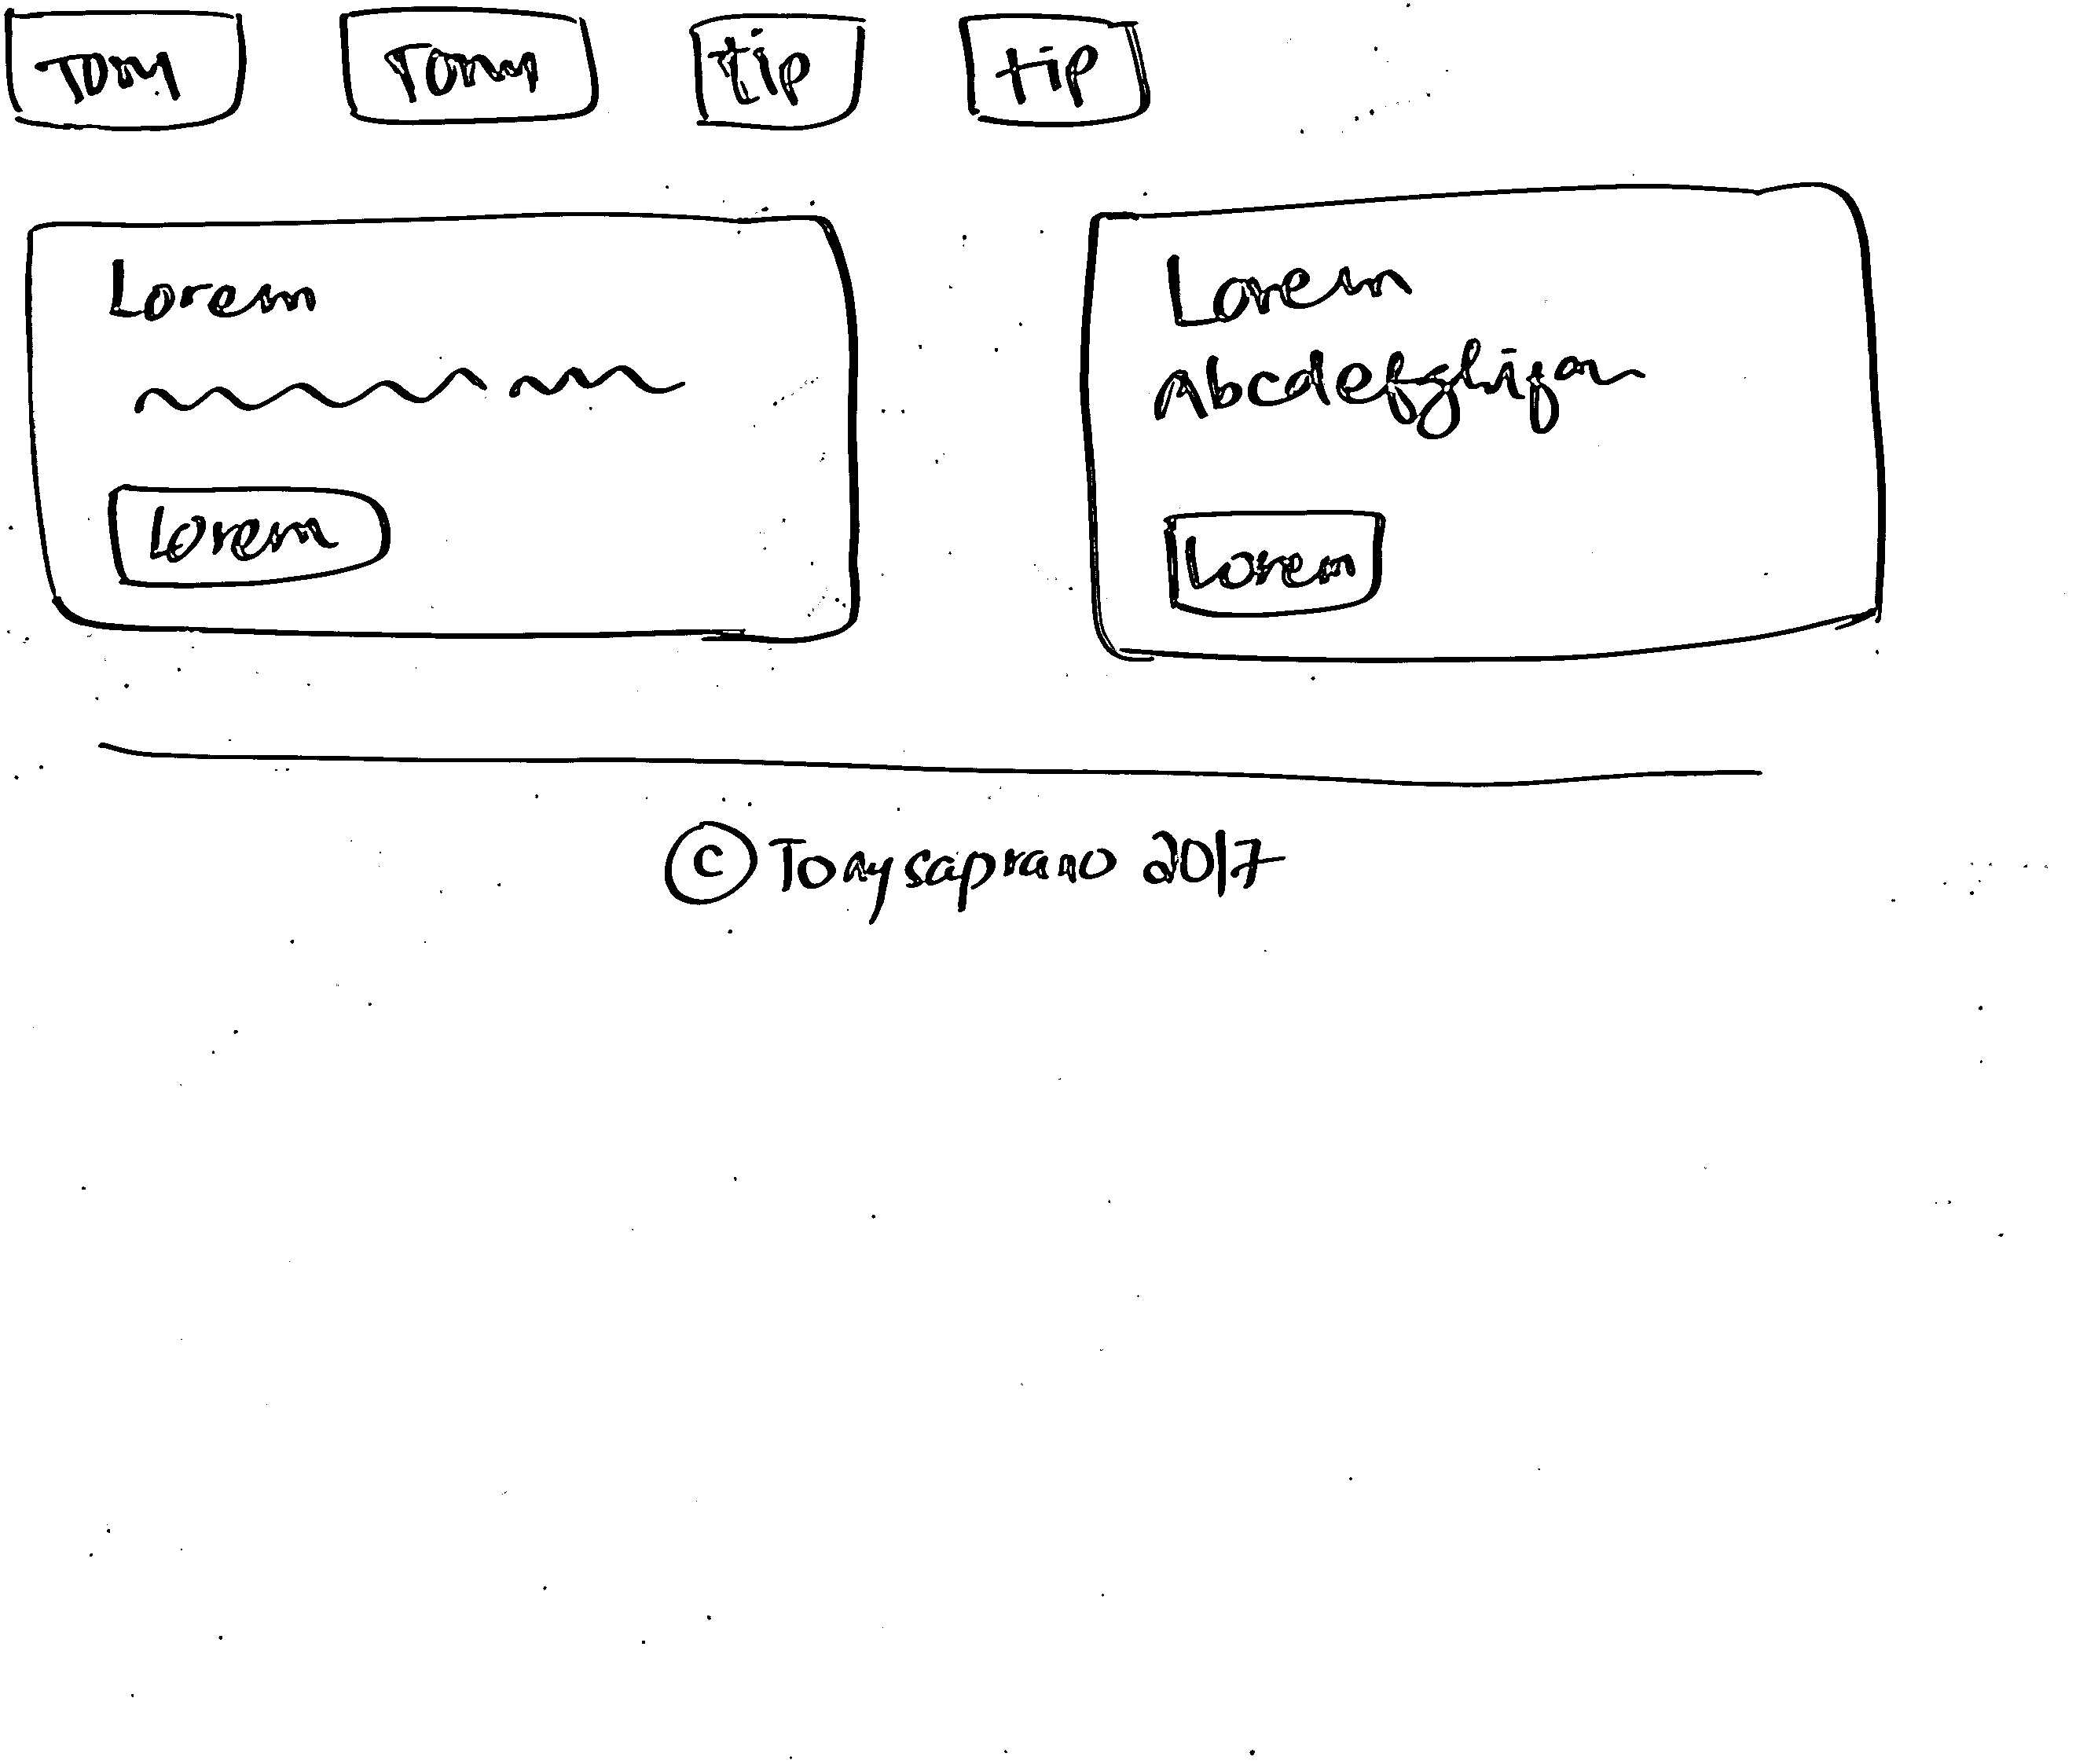 Tony Tony tip tip
Lorem
Lorem
Lorem
Abcdefghijan
Lorem
© Tonysaprano 2017